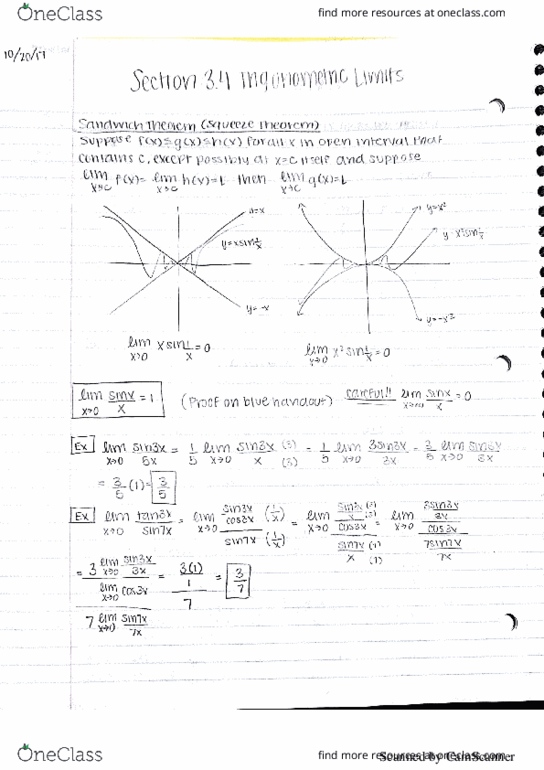 OneClass
find more resources at oneclass.com
10/20/17
Section 3.4 Trigonometric Limits
Sandwich Theorem (Squeeze Theorem)
Suppose f(x)≤g(x)≤h(x) for all x in open interval that
contains c, except possibly at x=c itself and suppose
lim x→c f(x) = lim x→c h(x)=L then lim x→c g(x)=L
y=x
y=x²
y=x sin 1/x
y=x² sin 1/x
y=-x
y=-x²
lim x→0 x sin 1/x = 0
lim x→0 x² sin 1/x = 0
lim x→0 sinx/x = 1 (Proof on blue handout) Careful!! lim x→∞ sinx/x = 0
Ex lim x→0 sin3x/5x = 1/5 lim x→0 sin3x/x (3)/(3) = 1/5 lim x→0 3sin3x/3x = 3/5 lim x→0 sin3x/3x
= 3/5 (1) = 3/5
Ex lim x→0 tan3x/sin7x = lim x→0 sin3x/cos3x (1/x) / sin7x (1/x) = lim x→0 sin3x/x (3)/(3) / cos3x / sin7x/x (7)/(7) = lim x→0 3sin3x/3x / cos3x / 7sin7x/7x
= 3 lim x→0 sin3x/3x / lim x→0 cos3x / 7 lim x→0 sin7x/7x = 3(1)/1 / 7 = 3/7
OneClass
find more resources at oneclass.com
Scanned by CamScanner